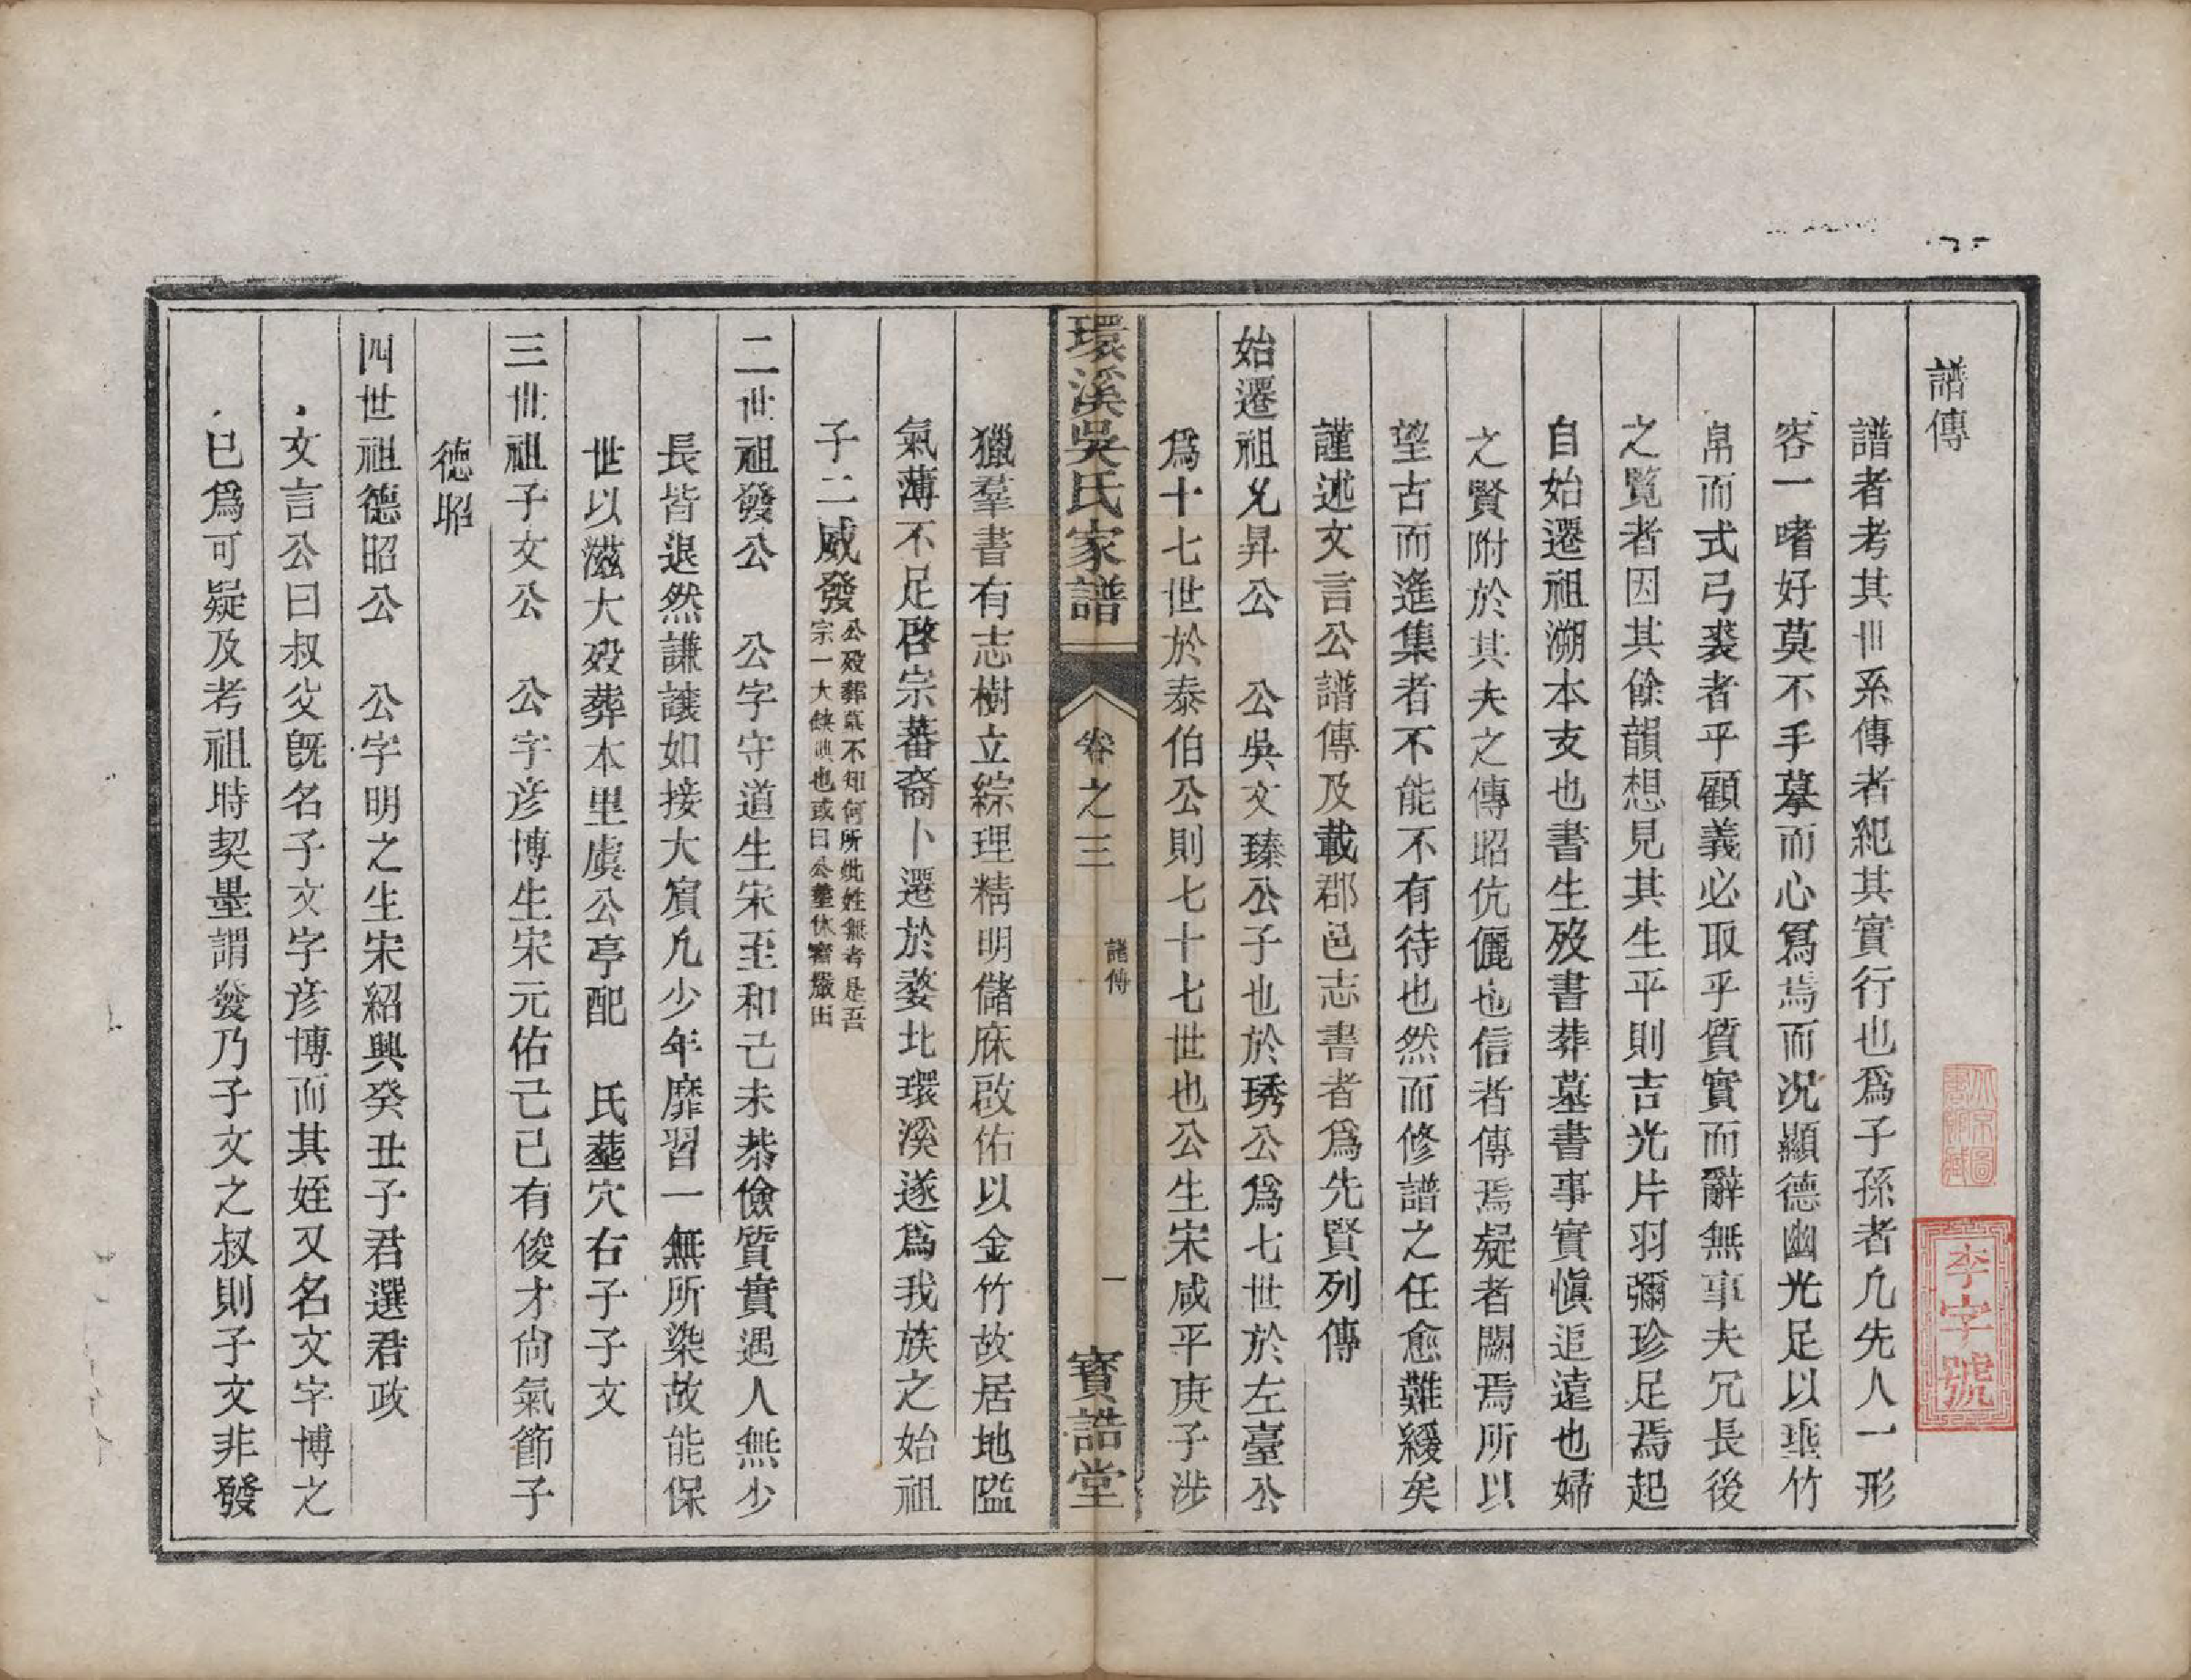 譜傳
譜者考其世系傳者紀其實行也爲子孫者凡先人一形
容一嗜好莫不手摹而心寫焉而況顯德幽光足以垂竹
帛而式弓裘者乎顧義必取乎質實而辭無事夫冗長後
之覽者因其餘韻想見其生平則吉光片羽彌珍足焉起
自始遷祖溯本支也書生歿書葬墓書事實愼追遠也婦
之賢附於其夫之傳昭伉儷也信者傳焉疑者闕焉所以
望古而遙集者不能不有待也然而修譜之任愈難緩矣
謹述文言公譜傳及載郡邑志書者爲先賢列傳
始遷祖兊昇公　公吳文臻公子也於琇公爲七世於左臺公
爲十七世於泰伯公則七十七世也公生宋咸平庚子涉
環溪吳氏家譜　卷之三　譜傳　一　寶誥堂
獵羣書有志樹立綜理精明儲庥啟佑以金竹故居地隘
氣薄不足啓宗蕃裔卜遷於婺北環溪遂爲我族之始祖
子二威發
公歿葬墓不知何所妣姓無考是吾
宗一大缺典也或曰公塟休甯嚴田
二世祖發公　公字守道生宋至和己未恭儉質實遇人無少
長皆退然謙讓如接大賔凡少年靡習一無所染故能保
世以滋大歿葬本里虞公亭配　氏塟穴右子子文
三世祖子文公　公字彥博生宋元佑己巳有俊才尙氣節子
德昭
四世祖德昭公　公字明之生宋紹興癸丑子君選君政
文言公曰叔父旣名子文字彥博而其姪又名文字博之
已爲可疑及考祖時契墨謂發乃子文之叔則子文非發
李字號